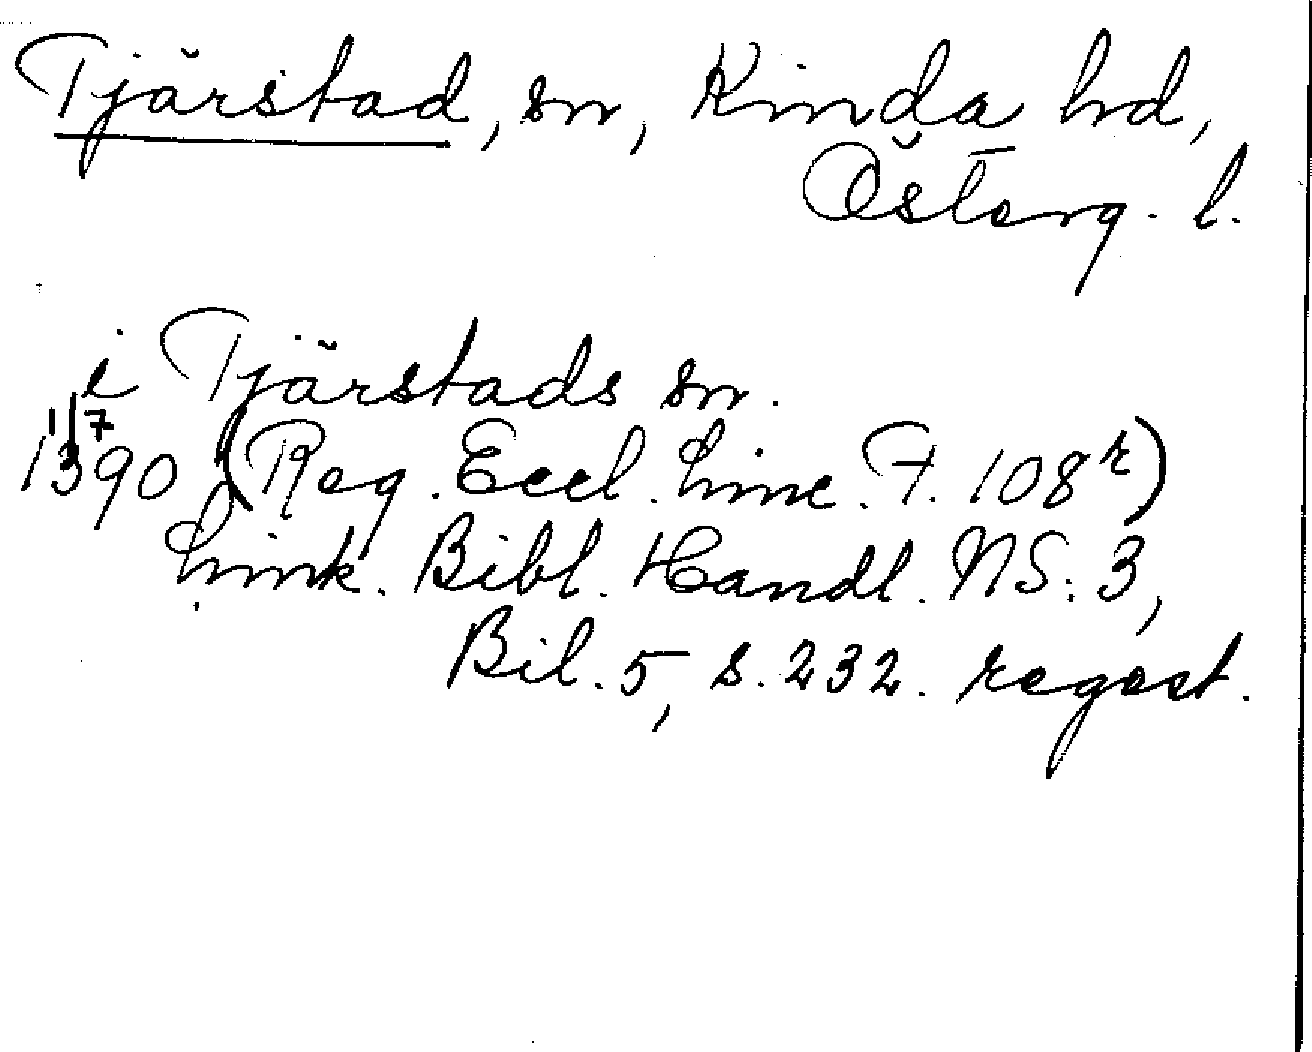 Tjärstad, sn, Kinda hd,
Österg. l.
i Tjärstads sn.
1/7
1390 (Reg. Eccl. Linc. F. 108r)
Link. Bibl. Handl. NS: 3,
Bil. 5, s. 232. regest.